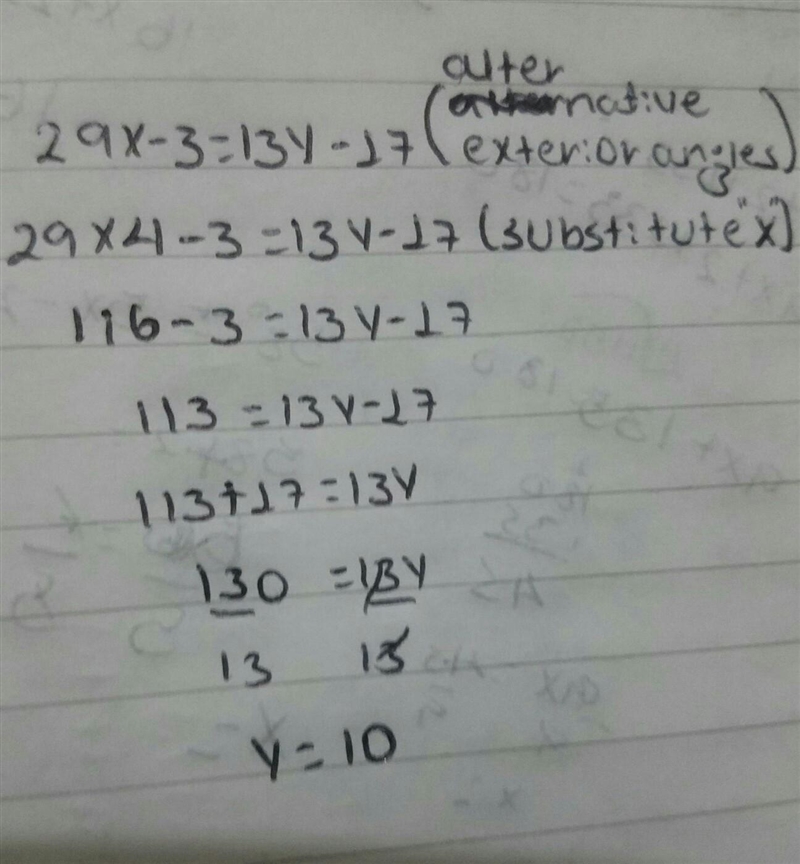 alter
29x-3=13y-17 (native
exterior angles)
29x4-3=13y-17 (substitute "x")
116-3=13y-17
113=13y-17
113+17=13y
130 =13y
13 13
y=10